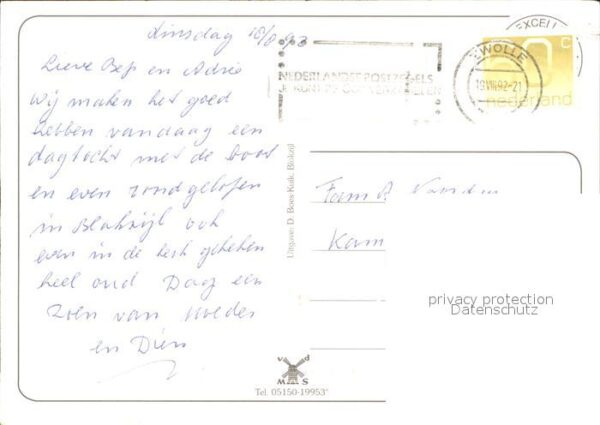 dinsdag 18/8 92
Lieve Bep en Adrie
Wij maken het goed
hebben vandaag een
dagtocht met de boot
en even rondgelopen
in Blokzijl ook
even in de kerk gekeken
heel oud Dag een
zoen van Moeder
en Dien
EXCEL
ZWOLLE
19.VIII.92-21
NEDERLANDSE POSTZEGELS
C
nederland
Uitgave: D. Boes-Kuik, Blokzijl
Fam
Kam
privacy protection
Datenschutz
v d
M S
Tel. 05150-19953*